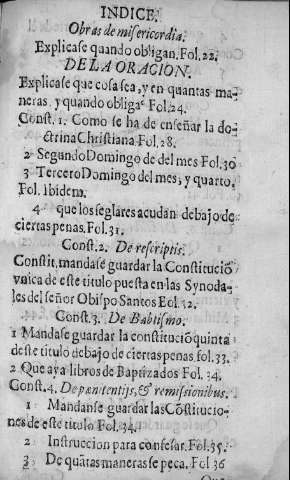 INDICE.
Obras de misericordia.
Explicase quando obligan. Fol. 22.
DE LA ORACION.
Explicase que cosa sea, y en quantas ma-
neras, y quando obligaˢ Fol. 24.
Const. 1. Como se ha de enseñar la do-
ctrina Christiana Fol. 28.
2 Segundo Domingo de del mes Fol. 30
3 Tercero Domingo del mes, y quarto.
Fol. Ibidem.
4 que los seglares acudan debajo de
ciertas penas. Fol. 31.
Const. 2. De rescriptis.
Constit. mandase guardar la Constituciō
vnica de este titulo puesta en las Synoda-
les del señor Obispo Santos Fol. 32.
Const. 3. De Babtismo.
1 Mandase guardar la constituciō quinta
de ste titulo debajo de ciertas penas. fol. 33.
2 Que aya libros de Baptizados Fol. 34.
Const. 4. De pænitentijs, & remissionibus.
1 Mandanse guardar las Cōstitucio-
nes de este titulo Fol. 34.
2 Instruccion para confesar. Fol. 35.
3 De quātas maneras se peca. Fol 36